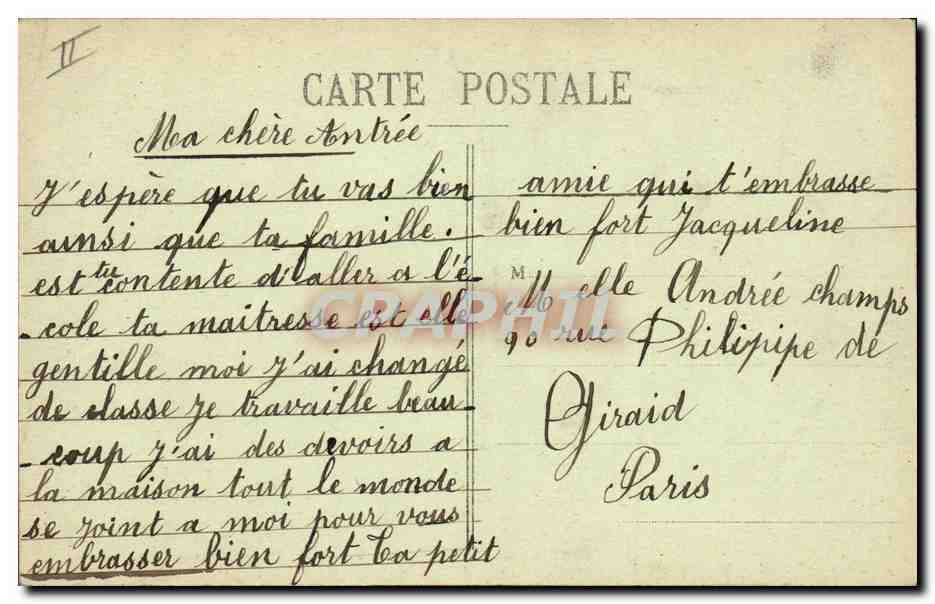 II
CARTE POSTALE
Ma chère Antrée
J'espère que tu vas bien
ainsi que ta famille.
est tu contente d'aller a l'é-
-cole ta maitresse est elle
gentille moi j'ai changé
de classe Je travaille beau-
-coup j'ai des devoirs a
la maison tout le monde
se joint a moi pour vous
embrasser bien fort Ta petit
amie qui t'embrasse
bien fort Jacqueline
M
Melle Andrée champs
90 rue Philipipe de
Giraid
Paris
GRAPHIL